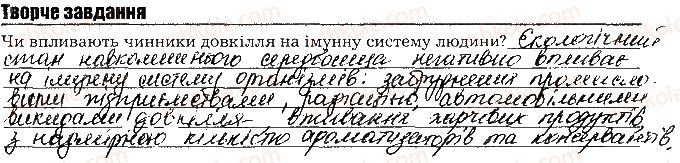 Творче завдання
Чи впливають чинники довкілля на імунну систему людини? Екологічний
стан навколишнього середовища негативно впливає
на імунну систему організмів: забруднення промисло-
вими підприємствами, радіацією, автомобільними
викидами довкілля - вживання харчових продуктів
з надмірною кількістю ароматизаторів та консервантів.